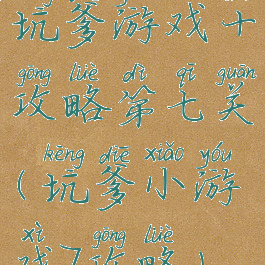 坑爹游戏十
gōng lüè dì qī guān
攻略第七关
kēng diē xiǎo yóu
(坑爹小游
xì gōng lüè
戏7攻略)